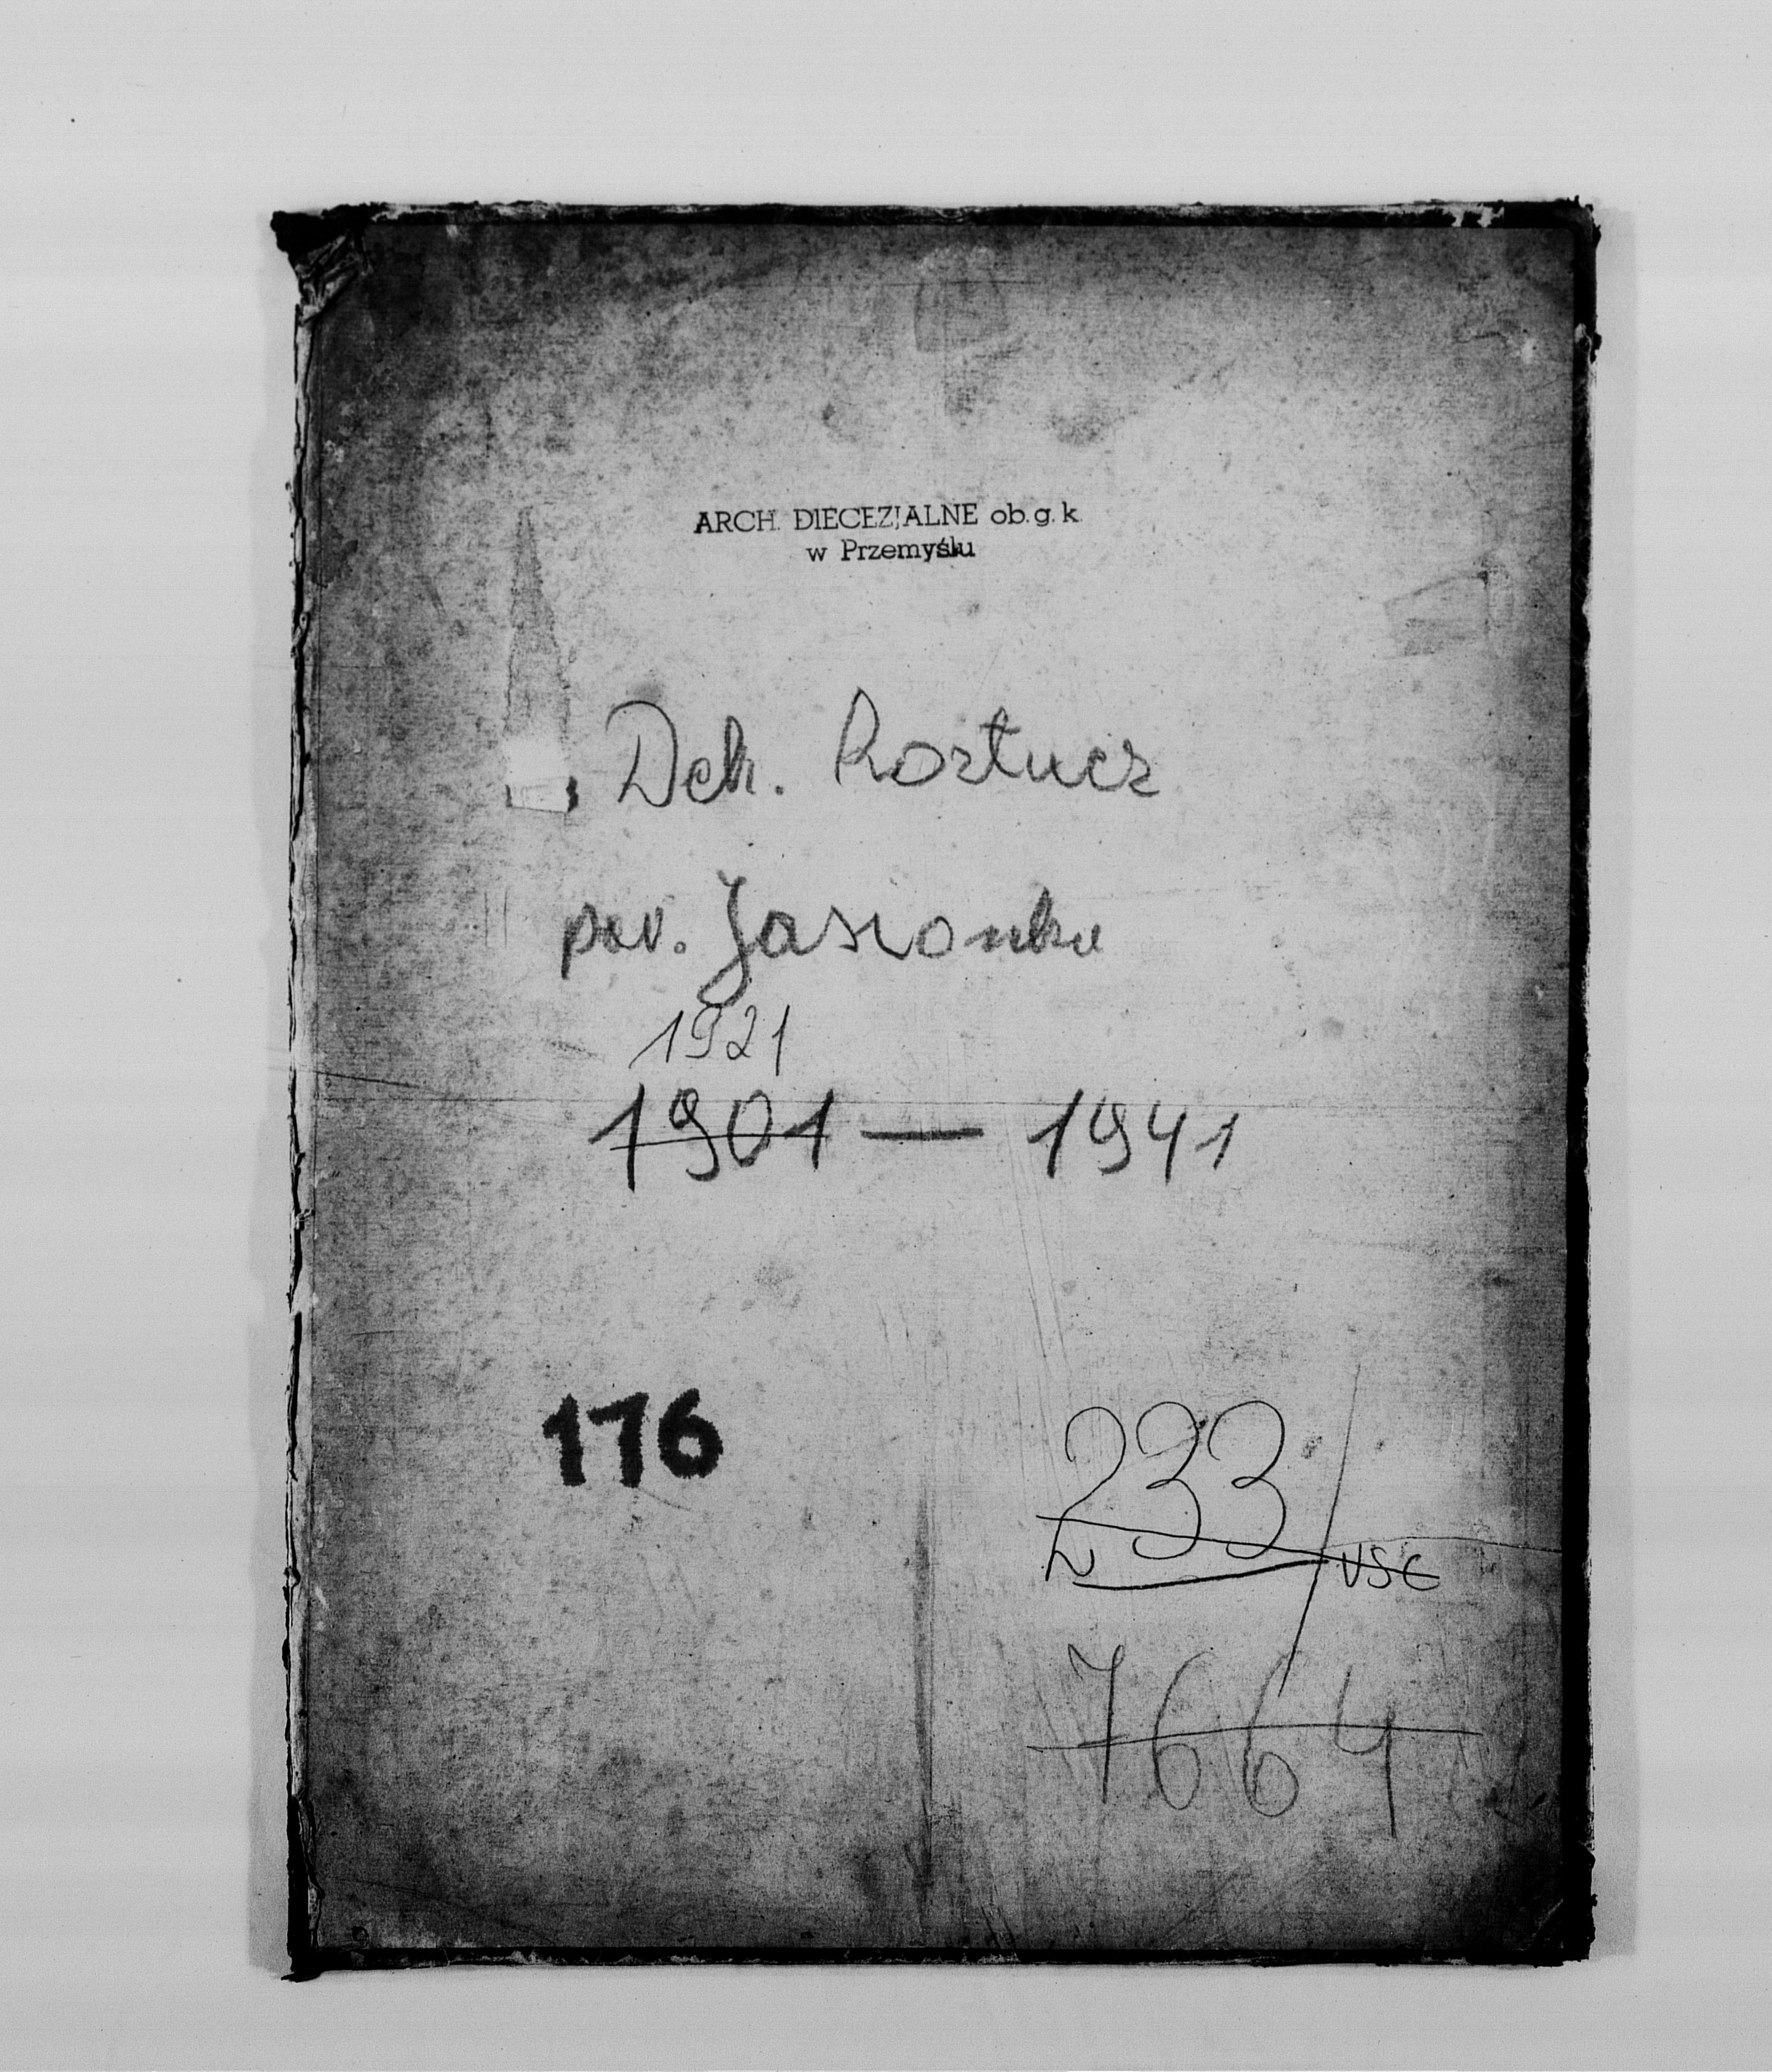 ARCH. DIECEZJALNE ob. g. k.
w Przemyślu
Dek. Roztucz
par. Jasionka
1921
1901 — 1941
176
233/
USC
7664